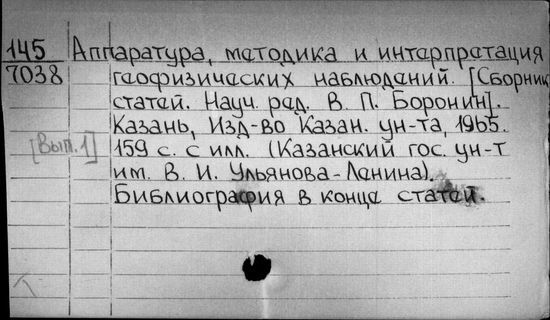 145 Аппаратура, методика и интерпретация
7038 геофизических наблюдений. [Сборник
статей. Науч. ред. В. П. Боронин].
Казань, Изд-во Казан. ун-та, 1965.
[Вып. 1] 159 с. с илл. (Казанский гос. ун-т
им. В. И. Ульянова-Ленина).
Библиография в конце статей.